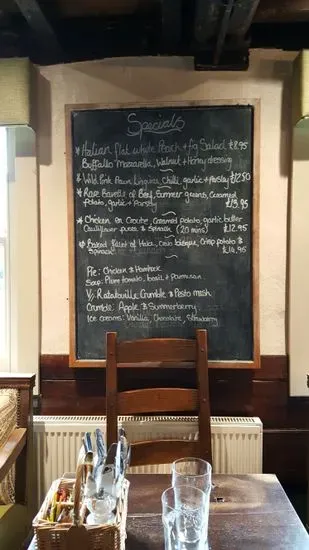 Specials
* Italian flat white Peach + fig Salad £8.95
Buffalo Mozzarella, Walnut + Honey dressing
* Wild Pink Prawn Linguine, Chilli, garlic + Parsley £12.50
* Rare Bavette of Beef, Summer greens, Creamed
potato, garlic + Parsley £13.95
* Chicken en Croute, Caramel potato, garlic butter
Cauliflower puree & Spinach (20 mins) £12.95
* Baked fillet of Hake, bisque, Crisp potato &
Spinach £14.95
Pie: Chicken & Hamhock
Soup: Plum tomato, basil + parmesan
V: Ratatouille Crumble & Pesto mash
Crumble: Apple & Summerberry
Ice creams: Vanilla, Chocolate, Strawberry